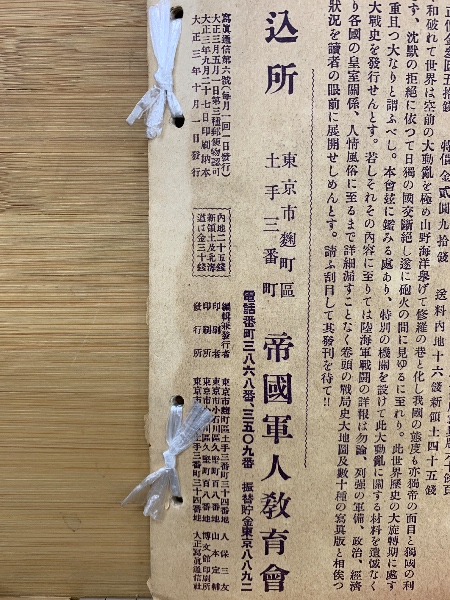 正價金參圓五拾錢 特價金貳圓九拾錢 送料內地十六錢新領土四十五錢
和破れて世界は空前の大動亂を極め山野海洋擧げて修羅の巷と化し我國の態度も亦獨帝の面目と獨國の利
す、沈默の拒絕に依つて日獨の國交斷絕し遂に砲火の間に見ゆるに至れり。此世界歷史の大旋轉期に處す
重且つ大なりと謂ふべし。本會玆に鑑みる處あり、特別の機關を設けて此大動亂に關する材料を遺憾なく
大戰史を發行せんとす。若しそれその內容に至りては陸海軍戰鬪の詳報は勿論、列强の軍備、政治、經濟
り各國の皇室關係、人情風俗に至るまで詳細漏すことなく卷頭の戰局史大地圖及數十種の寫眞版と相俟つ
狀況を讀者の眼前に展開せしめんとす。請ふ刮目して其發刊を待て!!
込所 東京市麴町區土手三番町 帝國軍人敎育會
電話番町三八六八番、三五〇九番 振替貯金東京八八九二
寫眞通信第六號(每月一回一日發行)
大正三年五月一日第三種郵便物認可
大正三年九月二十七日印刷納本
大正三年十月一日發行
內地二十五錢
新領土及北海
道は金三十錢
編輯兼發行者 東京市麴町區土手三番町三十四番地 人保三友
印刷者 東京市小石川區久堅町百八番地 山本定輔
印刷所 東京市小石川區久堅町百八番地 博文館印刷所
發行所 東京市麴町區土手三番町三十四番地 大正寫眞通信社